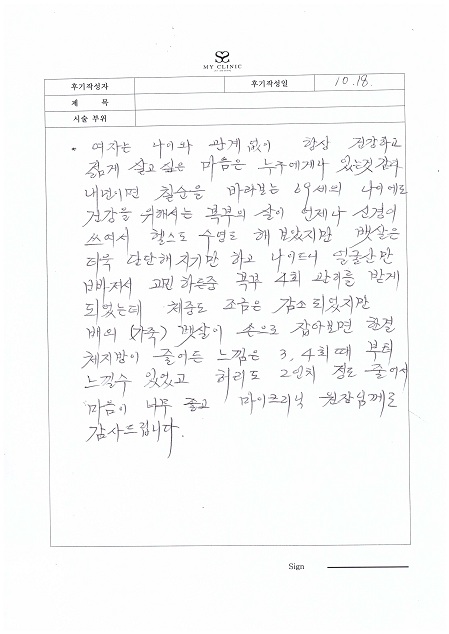 MY CLINIC
후기작성자
후기작성일 10.18.
제 목
시술 부위
• 여자는 나이와 관계없이 항상 건강하고
젊게 살고싶은 마음은 누구에게나 있는것 같다
내년이면 칠순을 바라보는 69세의 나이에도
건강을 위해서는 복부의 살이 언제나 신경이
쓰여서 헬스도 수영도 해 보았지만 뱃살은
더욱 단단해 지기만 하고 나이드니 얼굴살만
빠져서 고민 하든중 복부 4회 관리를 받게
되었는데 체중도 조금은 감소 되었지만
배의 (가죽) 뱃살이 손으로 잡아보면 한결
체지방이 줄어든 느낌은 3, 4회때 부터
느낄수 있었고 허리도 2인치 정도 줄어서
마음이 너무 좋고 마이크리닉 원장님께로
감사드립니다.
Sign